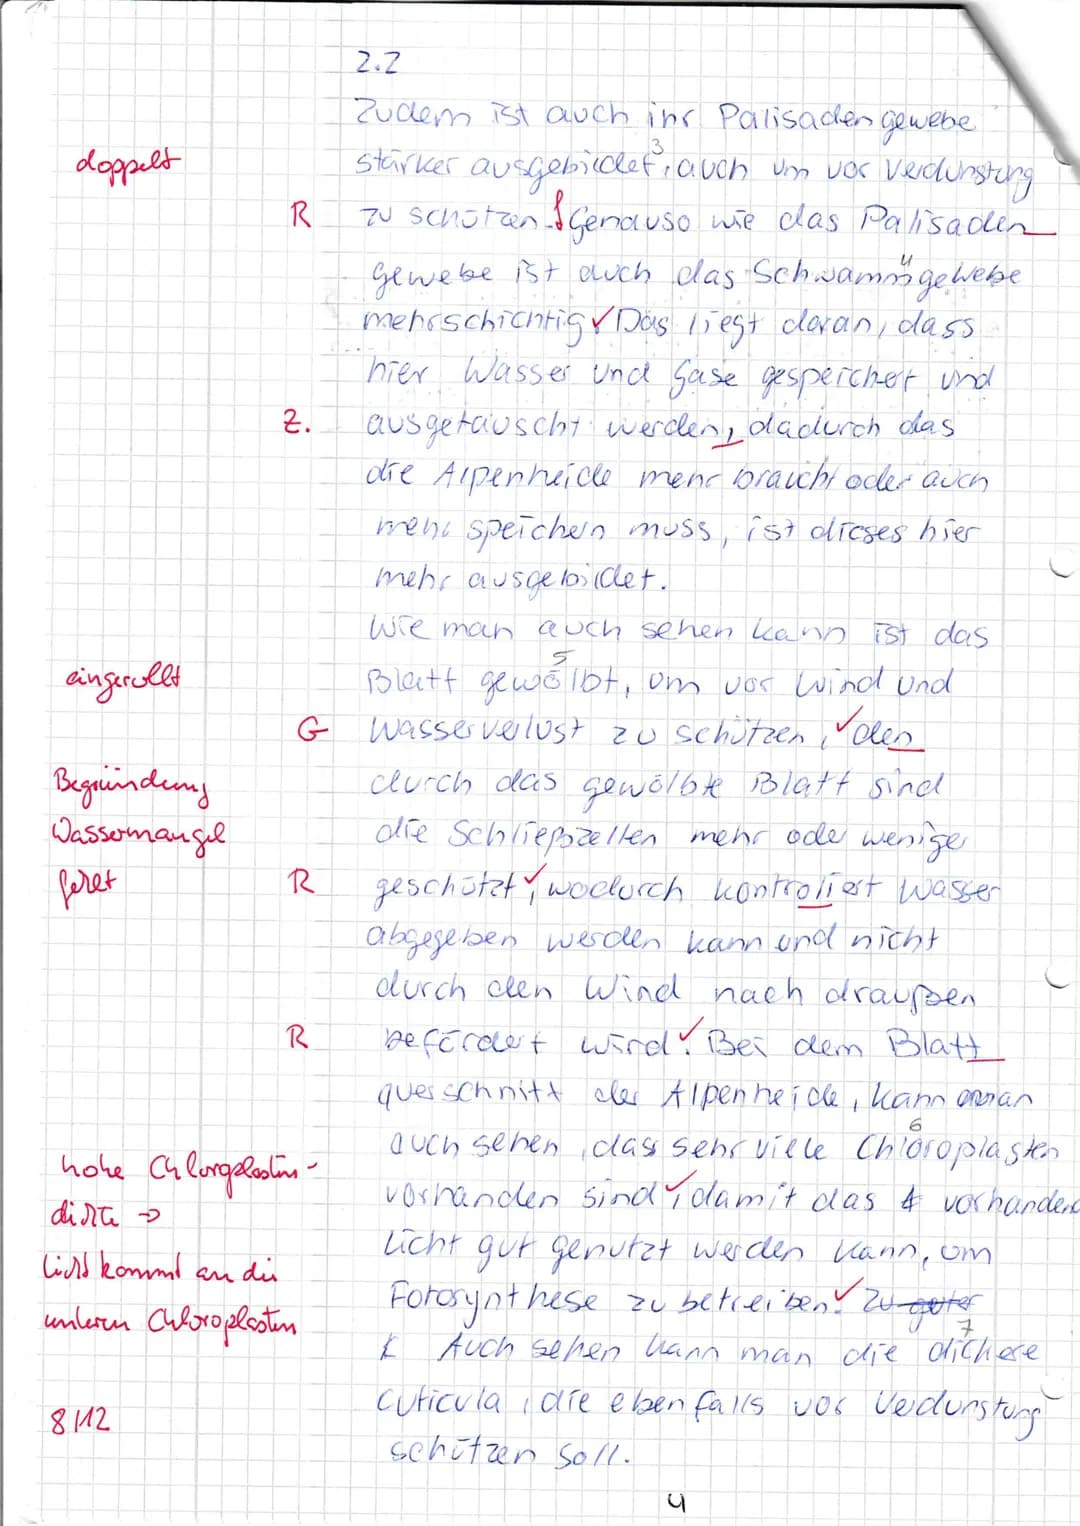 2.2
Zudem ist auch ihr Palisadengewebe
doppelt
stärker ausgebildet³, auch um vor Verdunstung
R
zu schützen. Genauso wie das Palisaden
gewebe ist auch das Schwammgewebe⁴
mehrschichtig ✓ Das liegt daran, dass
hier Wasser und Gase gespeichert und
Z.
ausgetauscht werden, dadurch das
die Alpenheide mehr braucht oder auch
mehr speichern muss, ist dieses hier
mehr ausgebildet.
Wie man auch sehen kann ist das
eingerollt
Blatt gewölbt⁵, um vor Wind und
G
Wasserverlust zu schützen, ✓ den
Begründung
durch das gewölbte Blatt sind
Wassermangel
die Schließzellen mehr oder weniger
R
geschützt ✓, wodurch kontroliert Wasser
abgegeben werden kann und nicht
durch den Wind nach draußen
R
befördert wird ✓. Bei dem Blatt
querschnitt der Alpenheide, kann man
auch sehen, dass sehr viele Chloroplasten⁶
hohe Chloroplasten-
vorhanden sind ✓, damit das vorhandene
dichte →
Licht gut genutzt werden kann, um
Licht kommt an die
Fotosynthese zu betreiben ✓. Zu guter
unteren Chloroplasten
Auch sehen kann man die dichere⁷
cuticula, die ebenfalls vor Verdunstung
8/12
schützen soll.
4